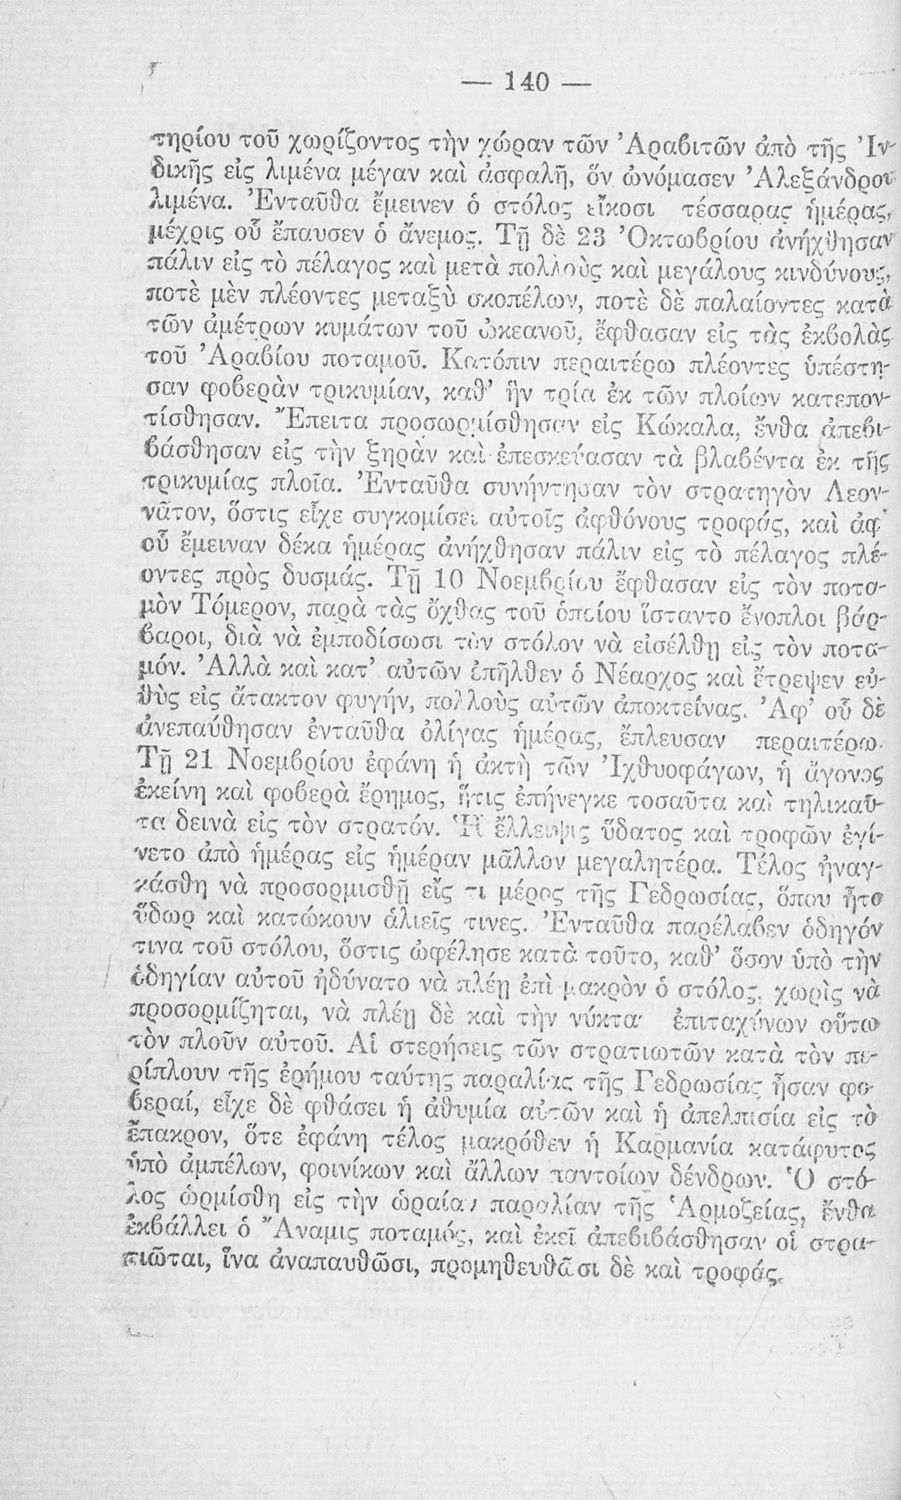 — 140 —
τηρίου τοῦ χωρίζοντος τὴν χώραν τῶν Ἀραβιτῶν ἀπὸ τῆς Ἰν-
δικῆς εἰς λιμένα μέγαν καὶ ἀσφαλῆ, ὅν ὠνόμασεν Ἀλεξάνδρου
λιμένα. Ἐνταῦθα ἔμεινεν ὁ στόλος εἴκοσι τέσσαρας ἡμέρας,
μέχρις οὗ ἔπαυσεν ὁ ἄνεμος. Τῇ δὲ 23 Ὀκτωβρίου ἀνήχθησαν
πάλιν εἰς τὸ πέλαγος καὶ μετὰ πολλοὺς καὶ μεγάλους κινδύνους,
ποτὲ μὲν πλέοντες μεταξὺ σκοπέλων, ποτὲ δὲ παλαίοντες κατὰ
τῶν ἀμέτρων κυμάτων τοῦ ὠκεανοῦ, ἔφθασαν εἰς τὰς ἐκβολὰς
τοῦ Ἀραβίου ποταμοῦ. Κατόπιν περαιτέρω πλέοντες ὑπέστη-
σαν φοβερὰν τρικυμίαν, καθ' ἣν τρία ἐκ τῶν πλοίων κατεπον-
τίσθησαν. Ἔπειτα προσωρμίσθησαν εἰς Κώκαλα, ἔνθα ἀπεβι-
βάσθησαν εἰς τὴν ξηρὰν καὶ ἐπεσκεύασαν τὰ βλαβέντα ἐκ τῆς
τρικυμίας πλοῖα. Ἐνταῦθα συνήντησαν τὸν στρατηγὸν Λεον-
νᾶτον, ὅστις εἶχε συγκομίσει αὐτοῖς ἀφθόνους τροφάς, καὶ ἀφ'
οὗ ἔμειναν δέκα ἡμέρας ἀνήχθησαν πάλιν εἰς τὸ πέλαγος πλέ-
οντες πρὸς δυσμάς. Τῇ 10 Νοεμβρίου ἔφθασαν εἰς τὸν ποτα-
μὸν Τόμερον, παρὰ τὰς ὄχθας τοῦ ὁποίου ἵσταντο ἔνοπλοι βάρ-
βαροι, διὰ νὰ ἐμποδίσωσι τὸν στόλον νὰ εἰσέλθῃ εἰς τὸν ποτα-
μόν. Ἀλλὰ καὶ κατ' αὐτῶν ἐπῆλθεν ὁ Νέαρχος καὶ ἔτρεψεν εὐ-
θὺς εἰς ἄτακτον φυγήν, πολλοὺς αὐτῶν ἀποκτείνας. Ἀφ' οὗ δὲ
ἀνεπαύθησαν ἐνταῦθα ὀλίγας ἡμέρας, ἔπλευσαν περαιτέρω.
Τῇ 21 Νοεμβρίου ἐφάνη ἡ ἀκτὴ τῶν Ἰχθυοφάγων, ἡ ἄγονος
ἐκείνη καὶ φοβερὰ ἔρημος, ἥτις ἐπήνεγκε τοσαῦτα καὶ τηλικαῦ-
τα δεινὰ εἰς τὸν στρατόν. Ἡ ἔλλειψις ὕδατος καὶ τροφῶν ἐγί-
νετο ἀπὸ ἡμέρας εἰς ἡμέραν μᾶλλον μεγαλητέρα. Τέλος ἠναγ-
κάσθη νὰ προσορμισθῇ εἴς τι μέρος τῆς Γεδρωσίας, ὅπου ἦτο
ὕδωρ καὶ κατώκουν ἁλιεῖς τινες. Ἐνταῦθα παρέλαβεν ὁδηγόν
τινα τοῦ στόλου, ὅστις ὠφέλησε κατὰ τοῦτο, καθ' ὅσον ὑπὸ τὴν
ὁδηγίαν αὐτοῦ ἠδύνατο νὰ πλέῃ ἐπὶ μακρὸν ὁ στόλος, χωρὶς νὰ
προσορμίζηται, νὰ πλέῃ δὲ καὶ τὴν νύκτα· ἐπιταχύνων οὕτω
τὸν πλοῦν αὐτοῦ. Αἱ στερήσεις τῶν στρατιωτῶν κατὰ τὸν πε-
ρίπλουν τῆς ἐρήμου ταύτης παραλίας τῆς Γεδρωσίας ἦσαν φο-
βεραί, εἶχε δὲ φθάσει ἡ ἀθυμία αὐτῶν καὶ ἡ ἀπελπισία εἰς τὸ
ἔπακρον, ὅτε ἐφάνη τέλος μακρόθεν ἡ Καρμανία κατάφυτος
ὑπὸ ἀμπέλων, φοινίκων καὶ ἄλλων παντοίων δένδρων. Ὁ στό-
λος ὡρμίσθη εἰς τὴν ὡραίαν παραλίαν τῆς Ἁρμοζείας, ἔνθα
ἐκβάλλει ὁ Ἄναμις ποταμός, καὶ ἐκεῖ ἀπεβιβάσθησαν οἱ στρα-
τιῶται, ἵνα ἀναπαυθῶσι, προμηθευθῶσι δὲ καὶ τροφάς.